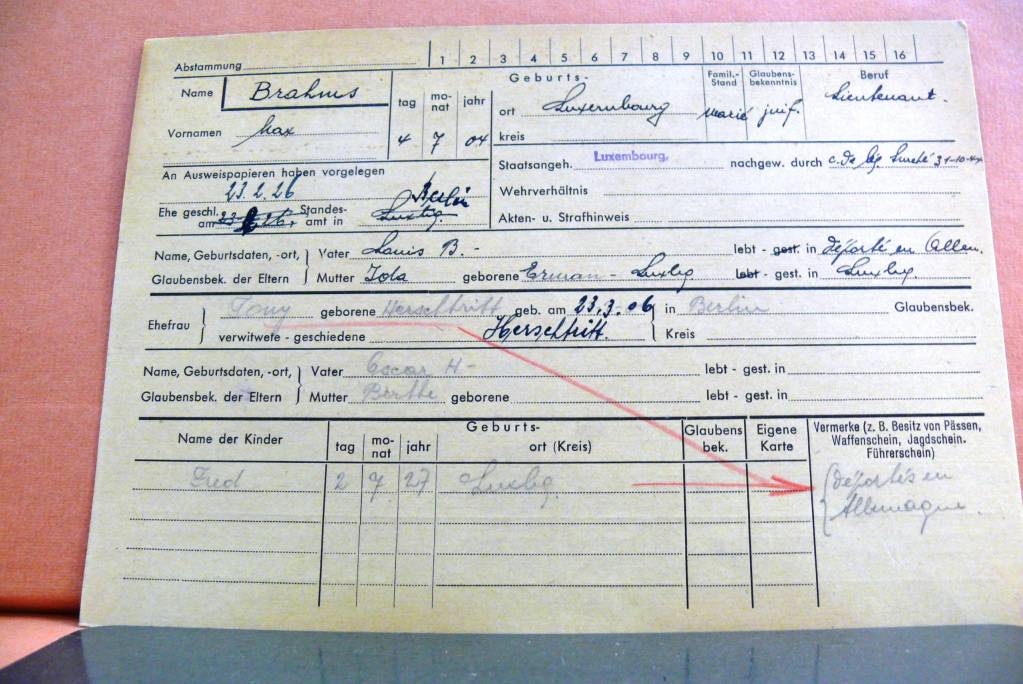 Abstammung 1 2 3 4 5 6 7 8 9 10 11 12 13 14 15 16
Name Brahms tag mo-nat jahr Geburts- Famil.-Stand Glaubens-bekenntnis Beruf
ort Luxembourg marié juif. Lieutenant.
Vornamen Max 4 7 04 kreis
An Ausweispapieren haben vorgelegen Staatsangeh. Luxembourg, nachgew. durch 31-10-44
23.2.26 Berlin Wehrverhältnis
Ehe geschl. am Standes-amt in Luxbg. Akten- u. Strafhinweis
Name, Geburtsdaten, -ort, Vater Louis B. - lebt - gest. in déporté en Allem.
Glaubensbek. der Eltern Mutter Ida geborene Erman - Luxbg lebt - gest. in Luxbg
Tony geborene Herschtritt geb. am 23.3.06 in Berlin Glaubensbek.
Ehefrau verwitwete - geschiedene Herschtritt. Kreis
Name, Geburtsdaten, -ort, Vater Oscar H - lebt - gest. in
Glaubensbek. der Eltern Mutter Berthe geborene lebt - gest. in
Name der Kinder Geburts- Glaubens bek. Eigene Karte Vermerke (z. B. Besitz von Pässen, Waffenschein, Jagdschein. Führerschein)
tag mo-nat jahr ort (Kreis)
Fred 2 7 27 Luxbg. déportés en
Allemagne.